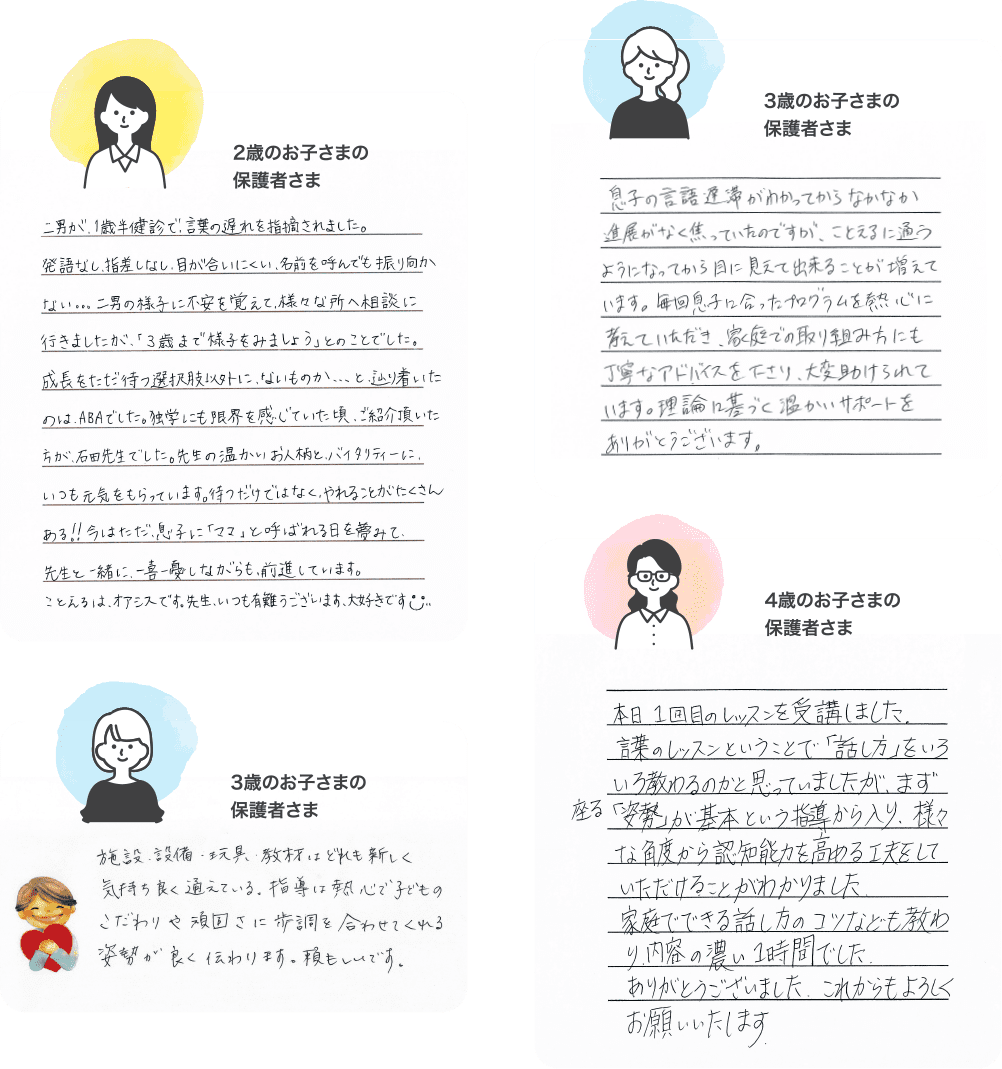 2歳のお子さまの
保護者さま
二男が、1歳半健診で、言葉の遅れを指摘されました。
発語なし、指差しなし、目が合いにくい、名前を呼んでも振り向か
ない…。二男の様子に不安を覚えて、様々な所へ相談に
行きましたが、「3歳まで様子をみましょう」とのことでした。
成長をただ待つ選択肢以外に、ないものか…と、辿り着いた
のは、ABAでした。独学にも限界を感じていた頃、ご紹介頂いた
方が、石田先生でした。先生の温かいお人柄と、バイタリティーに、
いつも元気をもらっています。待つだけではなく、やれることがたくさん
ある!!今はただ、息子に「ママ」と呼ばれる日を夢みて、
先生と一緒に、一喜一憂しながらも、前進しています。
ことえるは、オアシスです。先生、いつも有難うございます、大好きです
3歳のお子さまの
保護者さま
施設、設備・玩具、教材はどれも新しく
気持ち良く通えている。指導は熱心で子どもの
こだわりや頑固さに歩調を合わせてくれる
姿勢が良く伝わります。頼もしいです。
3歳のお子さまの
保護者さま
息子の言語遅滞がわかってからなかなか
進展がなく焦っていたのですが、ことえるに通う
ようになってから目に見えて出来ることが増えて
います。毎回息子に合ったプログラムを熱心に
考えていただき、家庭での取り組み方にも
丁寧なアドバイスを下さり、大変助けられて
います。理論に基づく温かいサポートを
ありがとうございます。
4歳のお子さまの
保護者さま
本日1回目のレッスンを受講しました。
言葉のレッスンということで「話し方」をいろ
いろ教わるのかと思っていましたが、まず
座る「姿勢」が基本という指導から入り、様々
な角度から認知能力を高める工夫をして
いただけることがわかりました。
家庭でできる話し方のコツなども教わ
り、内容の濃い1時間でした。
ありがとうございました。これからもよろしく
お願いいたします